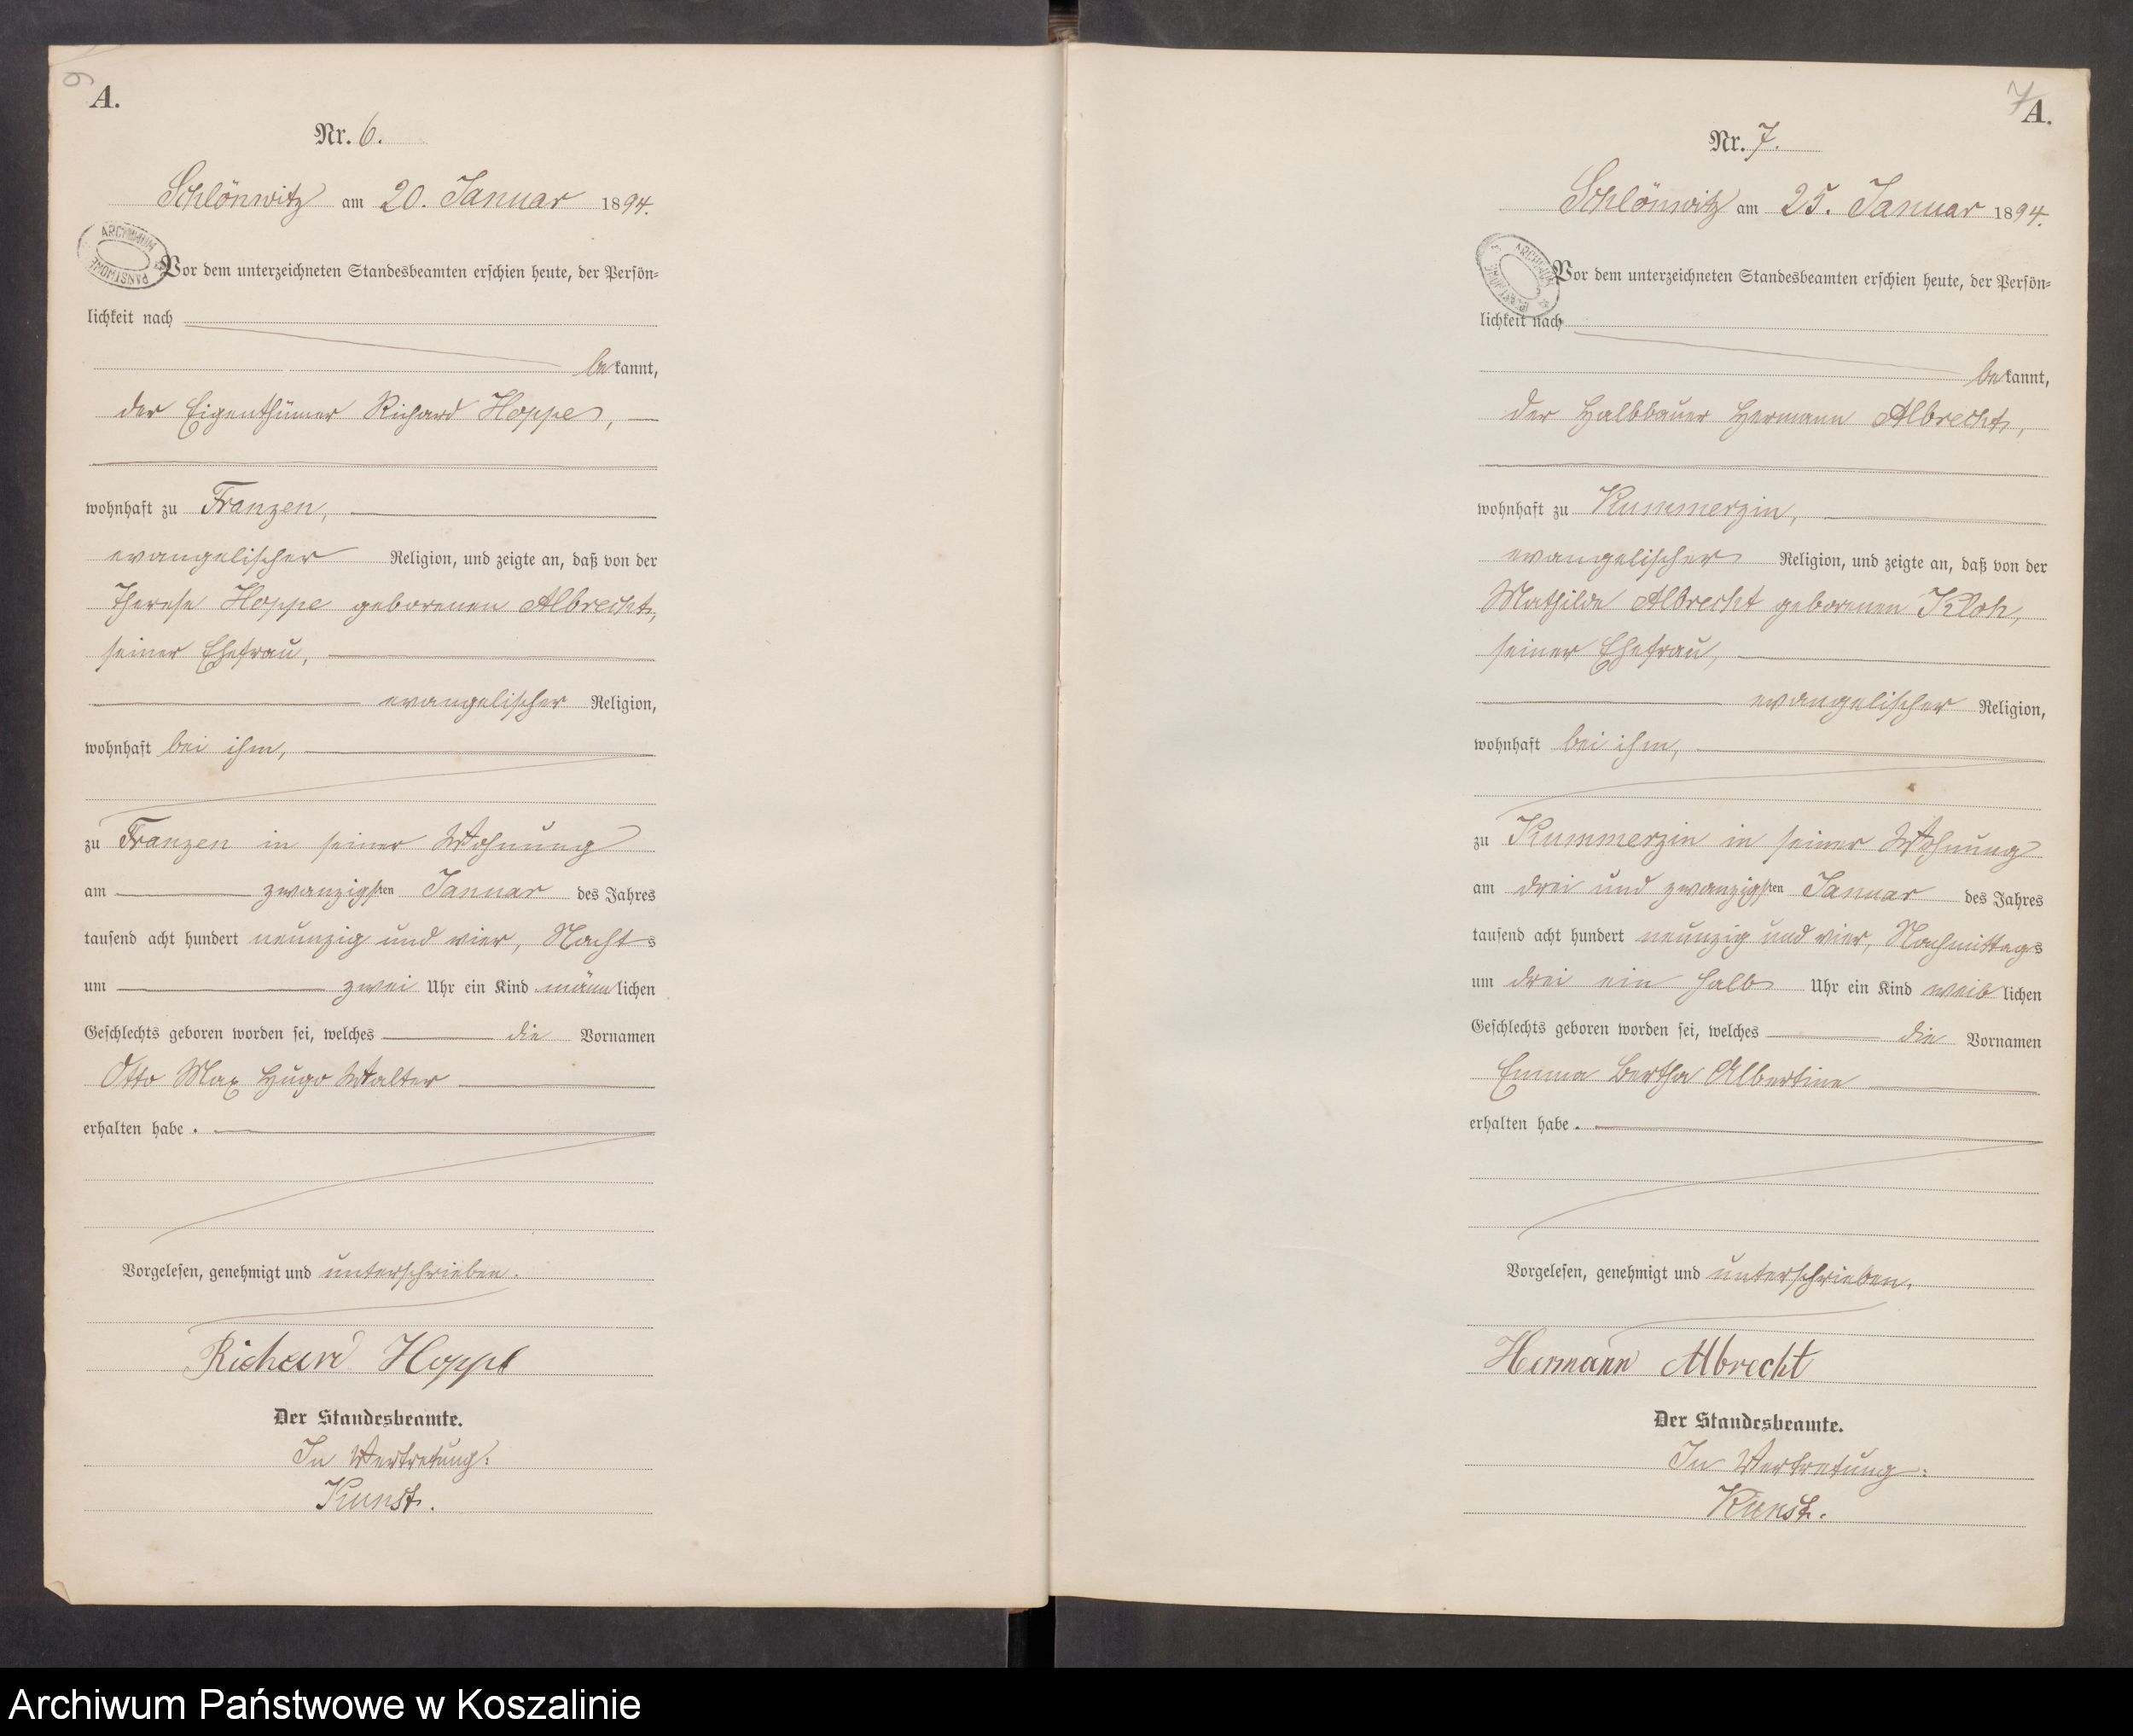 6
A.
Nr. 6.
Schlönwitz am 20. Januar 1894.
ARCHIWUM
PAŃSTWOWE
Vor dem unterzeichneten Standesbeamten erschien heute, der Persön-
lichkeit nach
bekannt,
der Eigenthümer Richard Hoppe,
wohnhaft zu Franzen,
evangelischer Religion, und zeigte an, daß von der
Therese Hoppe geborenen Albrecht,
seiner Ehefrau,
evangelischer Religion,
wohnhaft bei ihm,
zu Franzen in seiner Wohnung
am zwanzigsten Januar des Jahres
tausend acht hundert neunzig und vier, Nachts
um zwei Uhr ein Kind männlichen
Geschlechts geboren worden sei, welches die Vornamen
Otto Max Hugo Walter
erhalten habe.
Vorgelesen, genehmigt und unterschrieben.
Richard Hoppe
Der Standesbeamte.
In Vertretung:
Kunst.
7
A.
Nr. 7.
Schlönwitz am 25. Januar 1894.
ARCHIWUM
Vor dem unterzeichneten Standesbeamten erschien heute, der Persön-
lichkeit nach
bekannt,
der Halbbauer Hermann Albrecht,
wohnhaft zu Kummerzin,
evangelischer Religion, und zeigte an, daß von der
Mathilde Albrecht geborenen Kloh,
seiner Ehefrau,
evangelischer Religion,
wohnhaft bei ihm,
zu Kummerzin in seiner Wohnung
am drei und zwanzigsten Januar des Jahres
tausend acht hundert neunzig und vier, Nachmittags
um drei ein halb Uhr ein Kind weiblichen
Geschlechts geboren worden sei, welches die Vornamen
Emma Bertha Albertine
erhalten habe.
Vorgelesen, genehmigt und unterschrieben.
Hermann Albrecht
Der Standesbeamte.
In Vertretung:
Kunst.
Archiwum Państwowe w Koszalinie